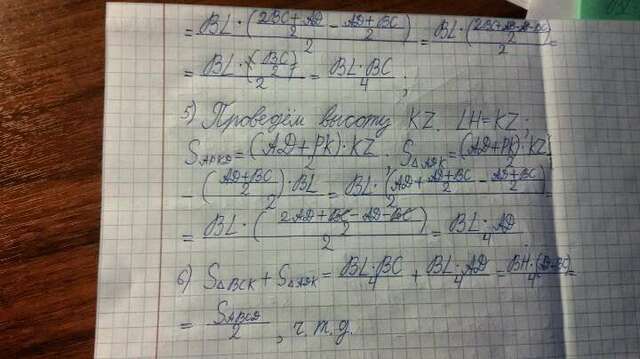 = BL·((2BC+AD)/2 − (AD+BC)/2)/2 = BL·((2BC+AD−AD−BC)/2)/2 =
= BL·(BC/2)/2 = BL·BC/4 ;
5) Проведём высоту KZ. LH=KZ;
S_APKD = (AD+PK)·KZ/2 . S_△ADK = (AD+PK)·KZ/2
− ((AD+BC)/2)·BL/2 = BL·(AD + (AD+BC)/2 − (AD+BC)/2)/2 =
= BL·((2AD+BC−AD−BC)/2)/2 = BL·AD/4
6) S_△BCK + S_△ADK = BL·BC/4 + BL·AD/4 = BH·(D+BC)/4 =
= S_ABCD/2 , ч.т.д.